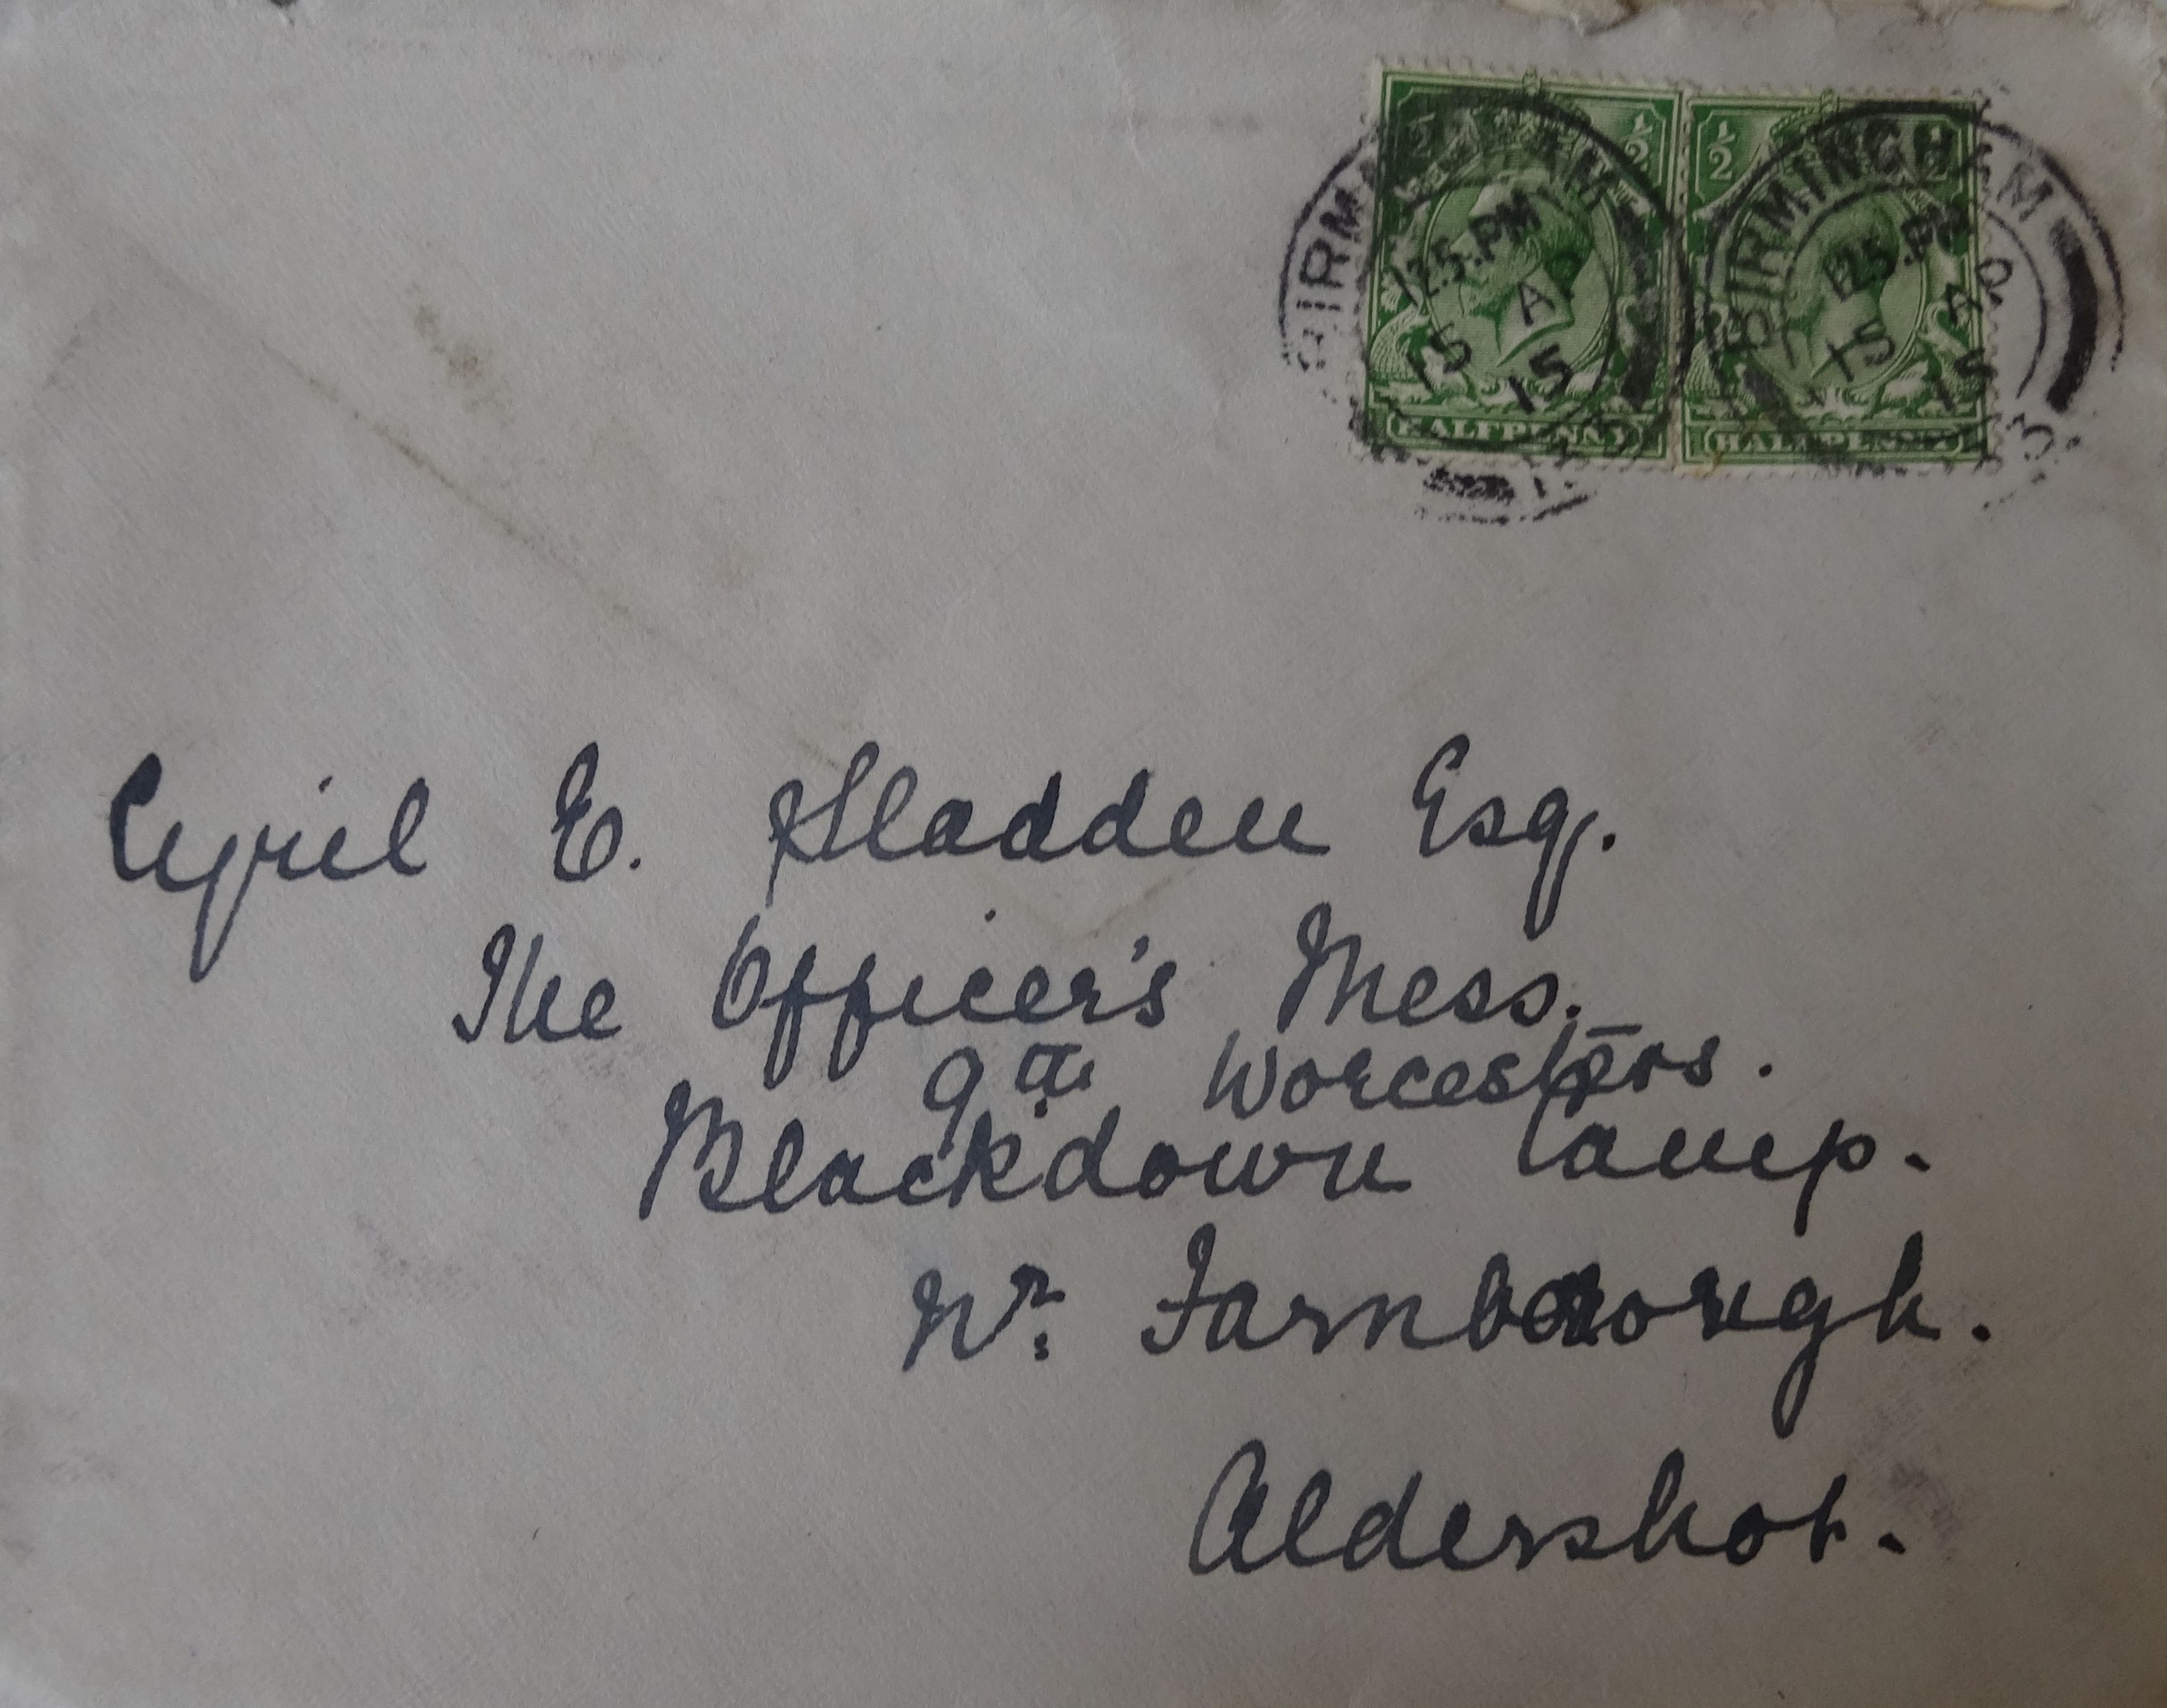 ½ ½
½
BIRMINGHAM
1 25. PM
15 AP
15
HALFPENNY
BIRMINGHAM
1 25. PM
15 AP
15
3
HALFPENNY
Cyril E. Sladden Esq.
The Officer's Mess.
9th Worcesters.
Blackdown Camp.
Nr. Farnborough.
Aldershot.